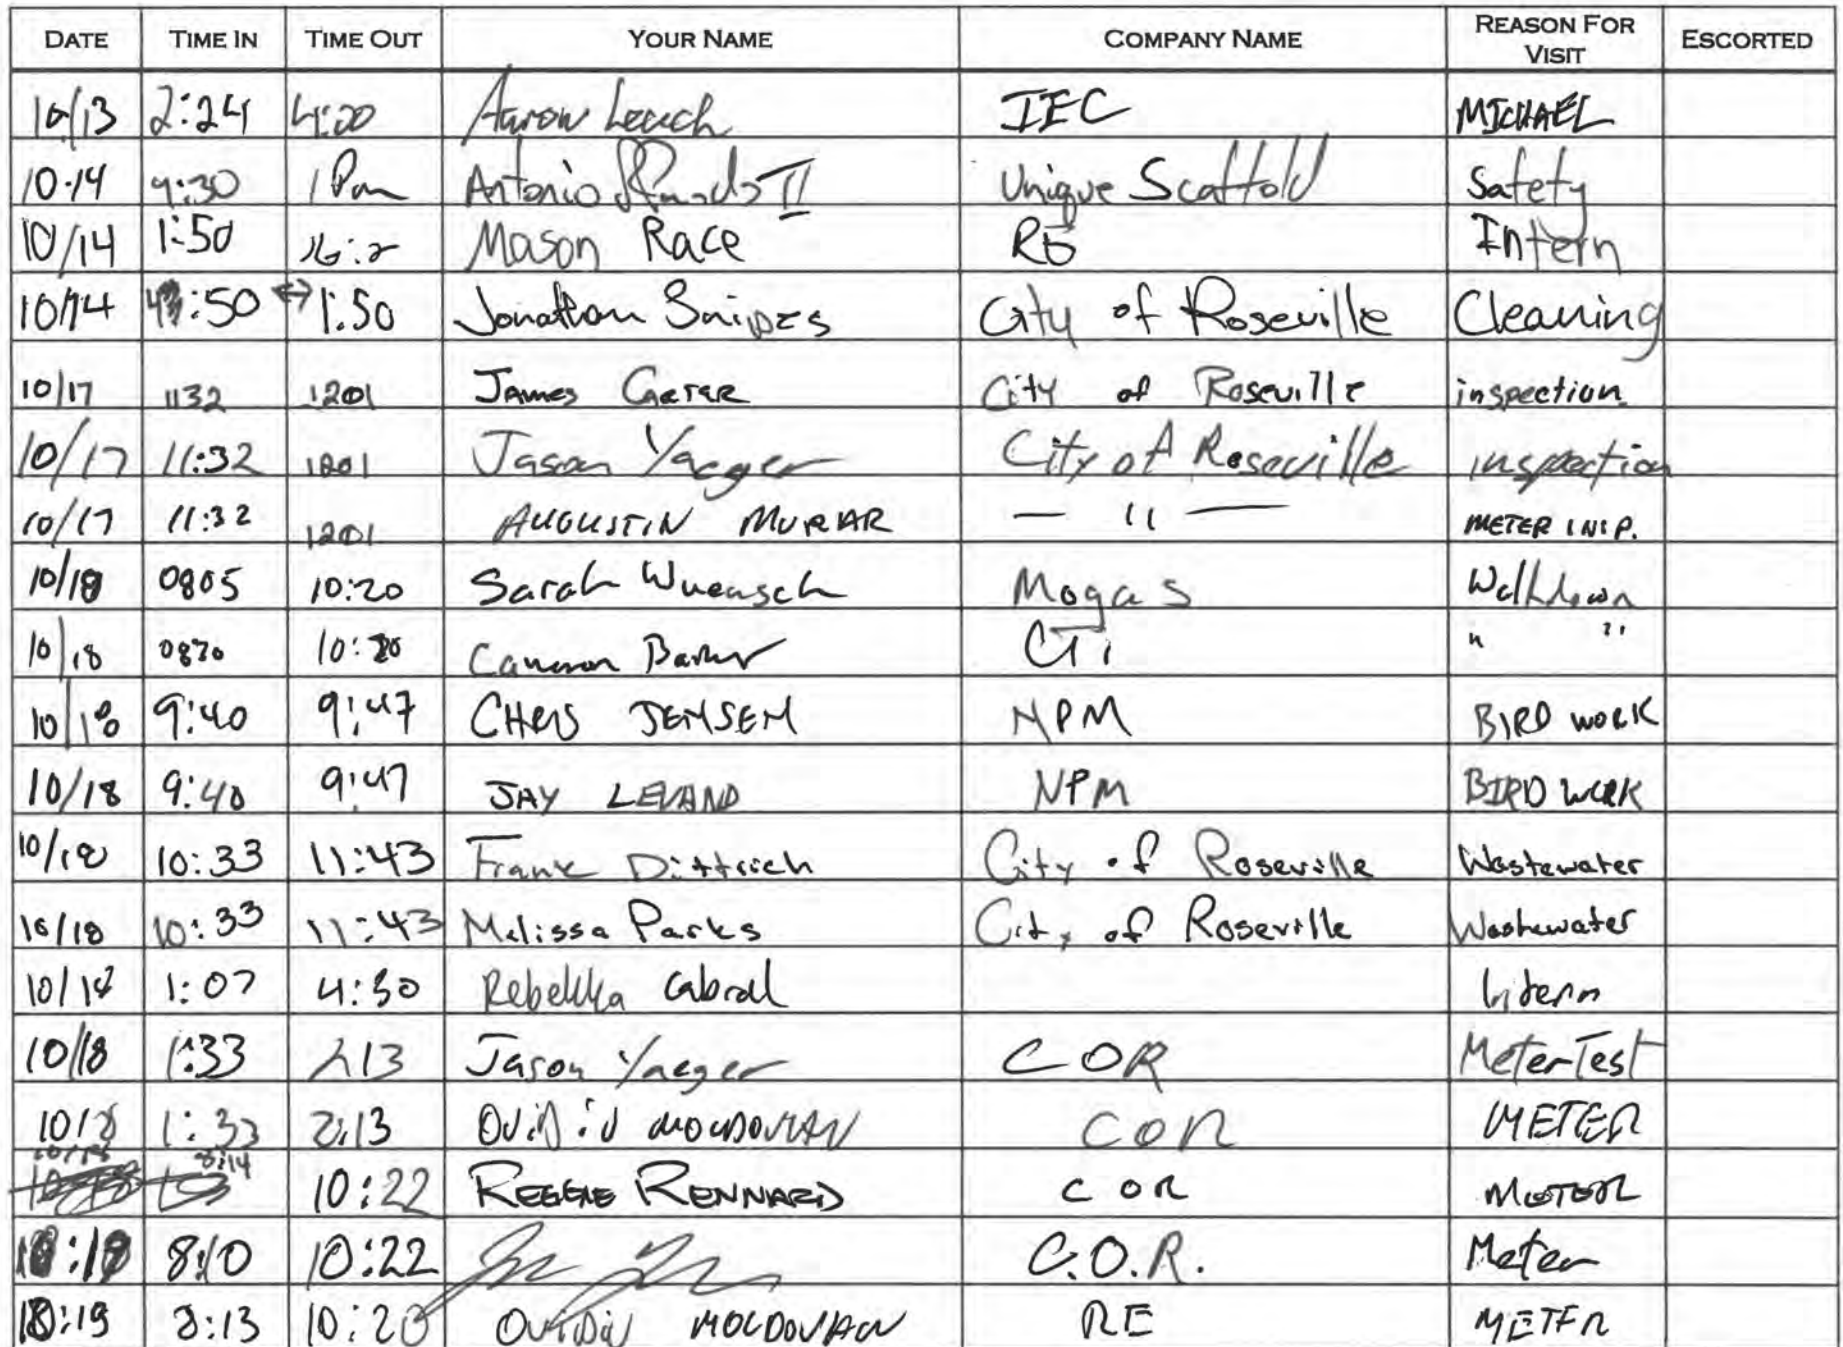 DATE TIME IN TIME OUT YOUR NAME COMPANY NAME REASON FOR VISIT ESCORTED
10/13 2:24 4:20 Aaron Leach IEC MICHAEL
10·14 9:30 1 Pm Antonio II Unique Scaffold Safety
10/14 1:50 Mason Race RE Intern
10/14 :50 ↔ 1:50 Jonathan Snipes City of Roseville Cleaning
10/17 1132 1201 James Carter City of Roseville inspection
10/17 11:32 1201 Jason Yaeger City of Roseville inspection
10/17 11:32 1201 AUGUSTIN MURAR — " — METER INSP.
10/18 0805 10:20 Sarah Wuensch Mogas Walkdown
10/18 10:20 Cameron Barker " "
10/18 9:40 9:47 CHRIS JENSEN NPM BIRD WORK
10/18 9:40 9:47 JAY LEVAND NPM BIRD WORK
10/18 10:33 11:43 Frank Dittrich City of Roseville Wastewater
10/18 10:33 11:43 Melissa Parks City of Roseville Wastewater
10/18 1:07 4:30 Rebekka Cabral Intern
10/18 1:33 213 Jason Yaeger COR Meter Test
10/18 1:33 2:13 OVIDIU MOLDOVAN COR METER
10/19 8:14 10:22 REGGIE RENNARD COR METER
:19 8:10 10:22 C.O.R. Meter
10:19 8:13 10:20 OVIDIU MOLDOVAN RE METER